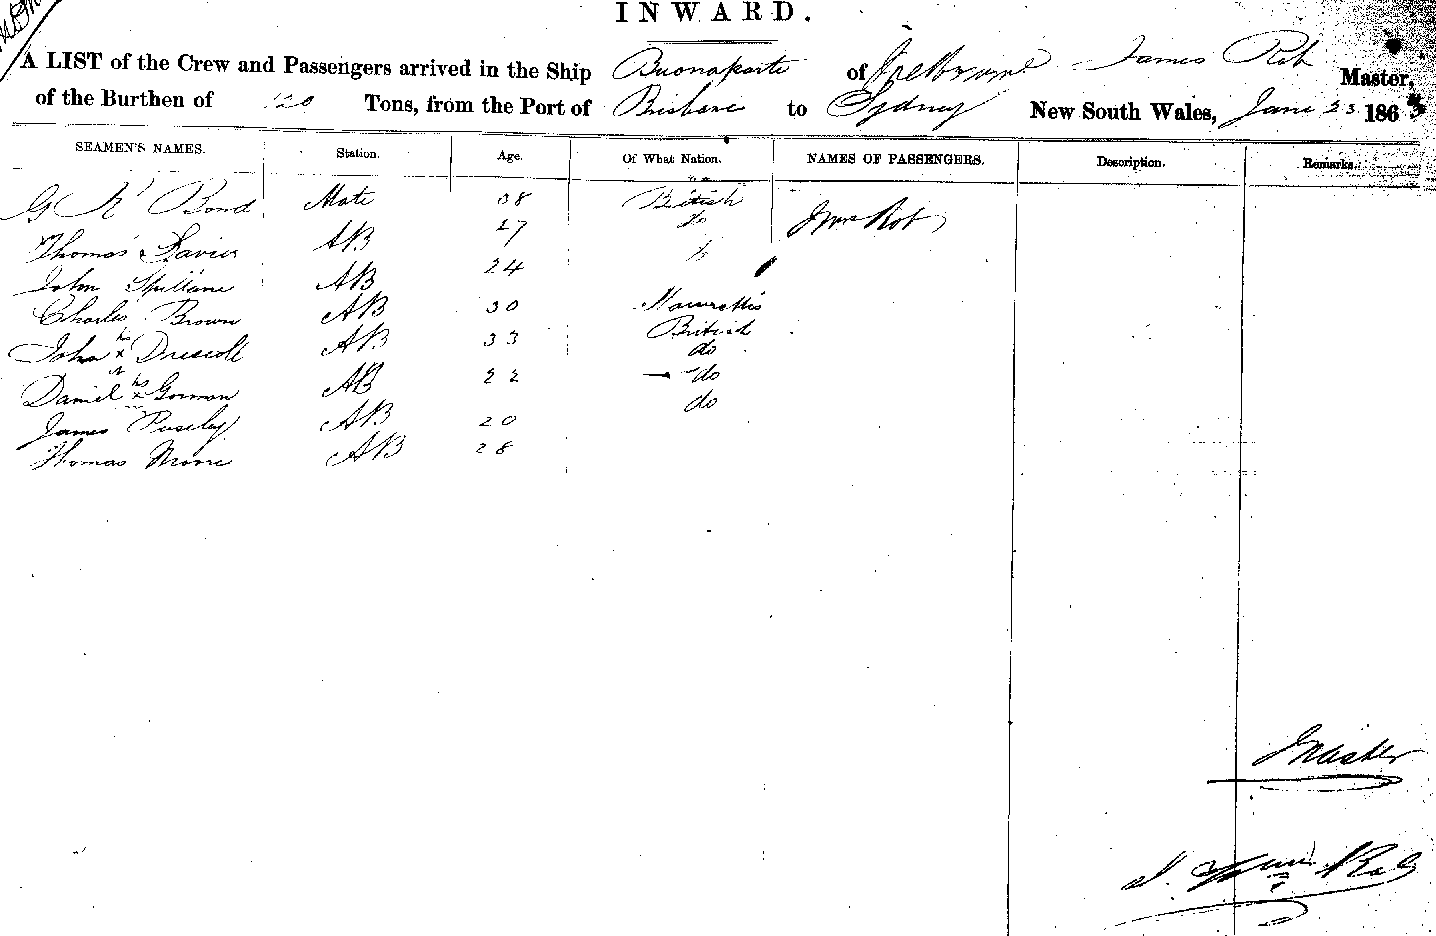 INWARD.
A LIST of the Crew and Passengers arrived in the Ship Buonaparte of Melbourne James Rob Master,
of the Burthen of 120 Tons, from the Port of Brisbane to Sydney New South Wales, Jany 23 1863
SEAMEN'S NAMES. Station. Age. Of What Nation. NAMES OF PASSENGERS. Description. Remarks.
G R Bond Mate 38 British
Thomas Davies AB 27 do Mrs Rob
John Spillane AB 24 do
Charles Brown AB 30
John his x Driscoll AB 33 British
Daniel his x Gorman AB 22 do
James Pusely AB 20 do
Thomas Moore AB 28 do
Master
Rob